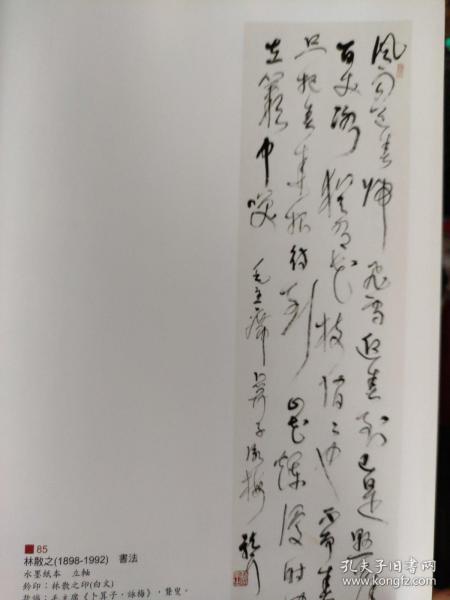 风雨送春归飞雪迎春到已是悬崖
百丈冰犹有花枝俏々也不争春
只把春来报待到山花烂漫时
在丛中笑 毛主席卜算子咏梅
85
林散之(1898-1992) 書法
水墨紙本 立軸
鈐印：林散之印(白文)
款識：毛主席《卜算子·詠梅》，聾叟。
孔夫子旧书网